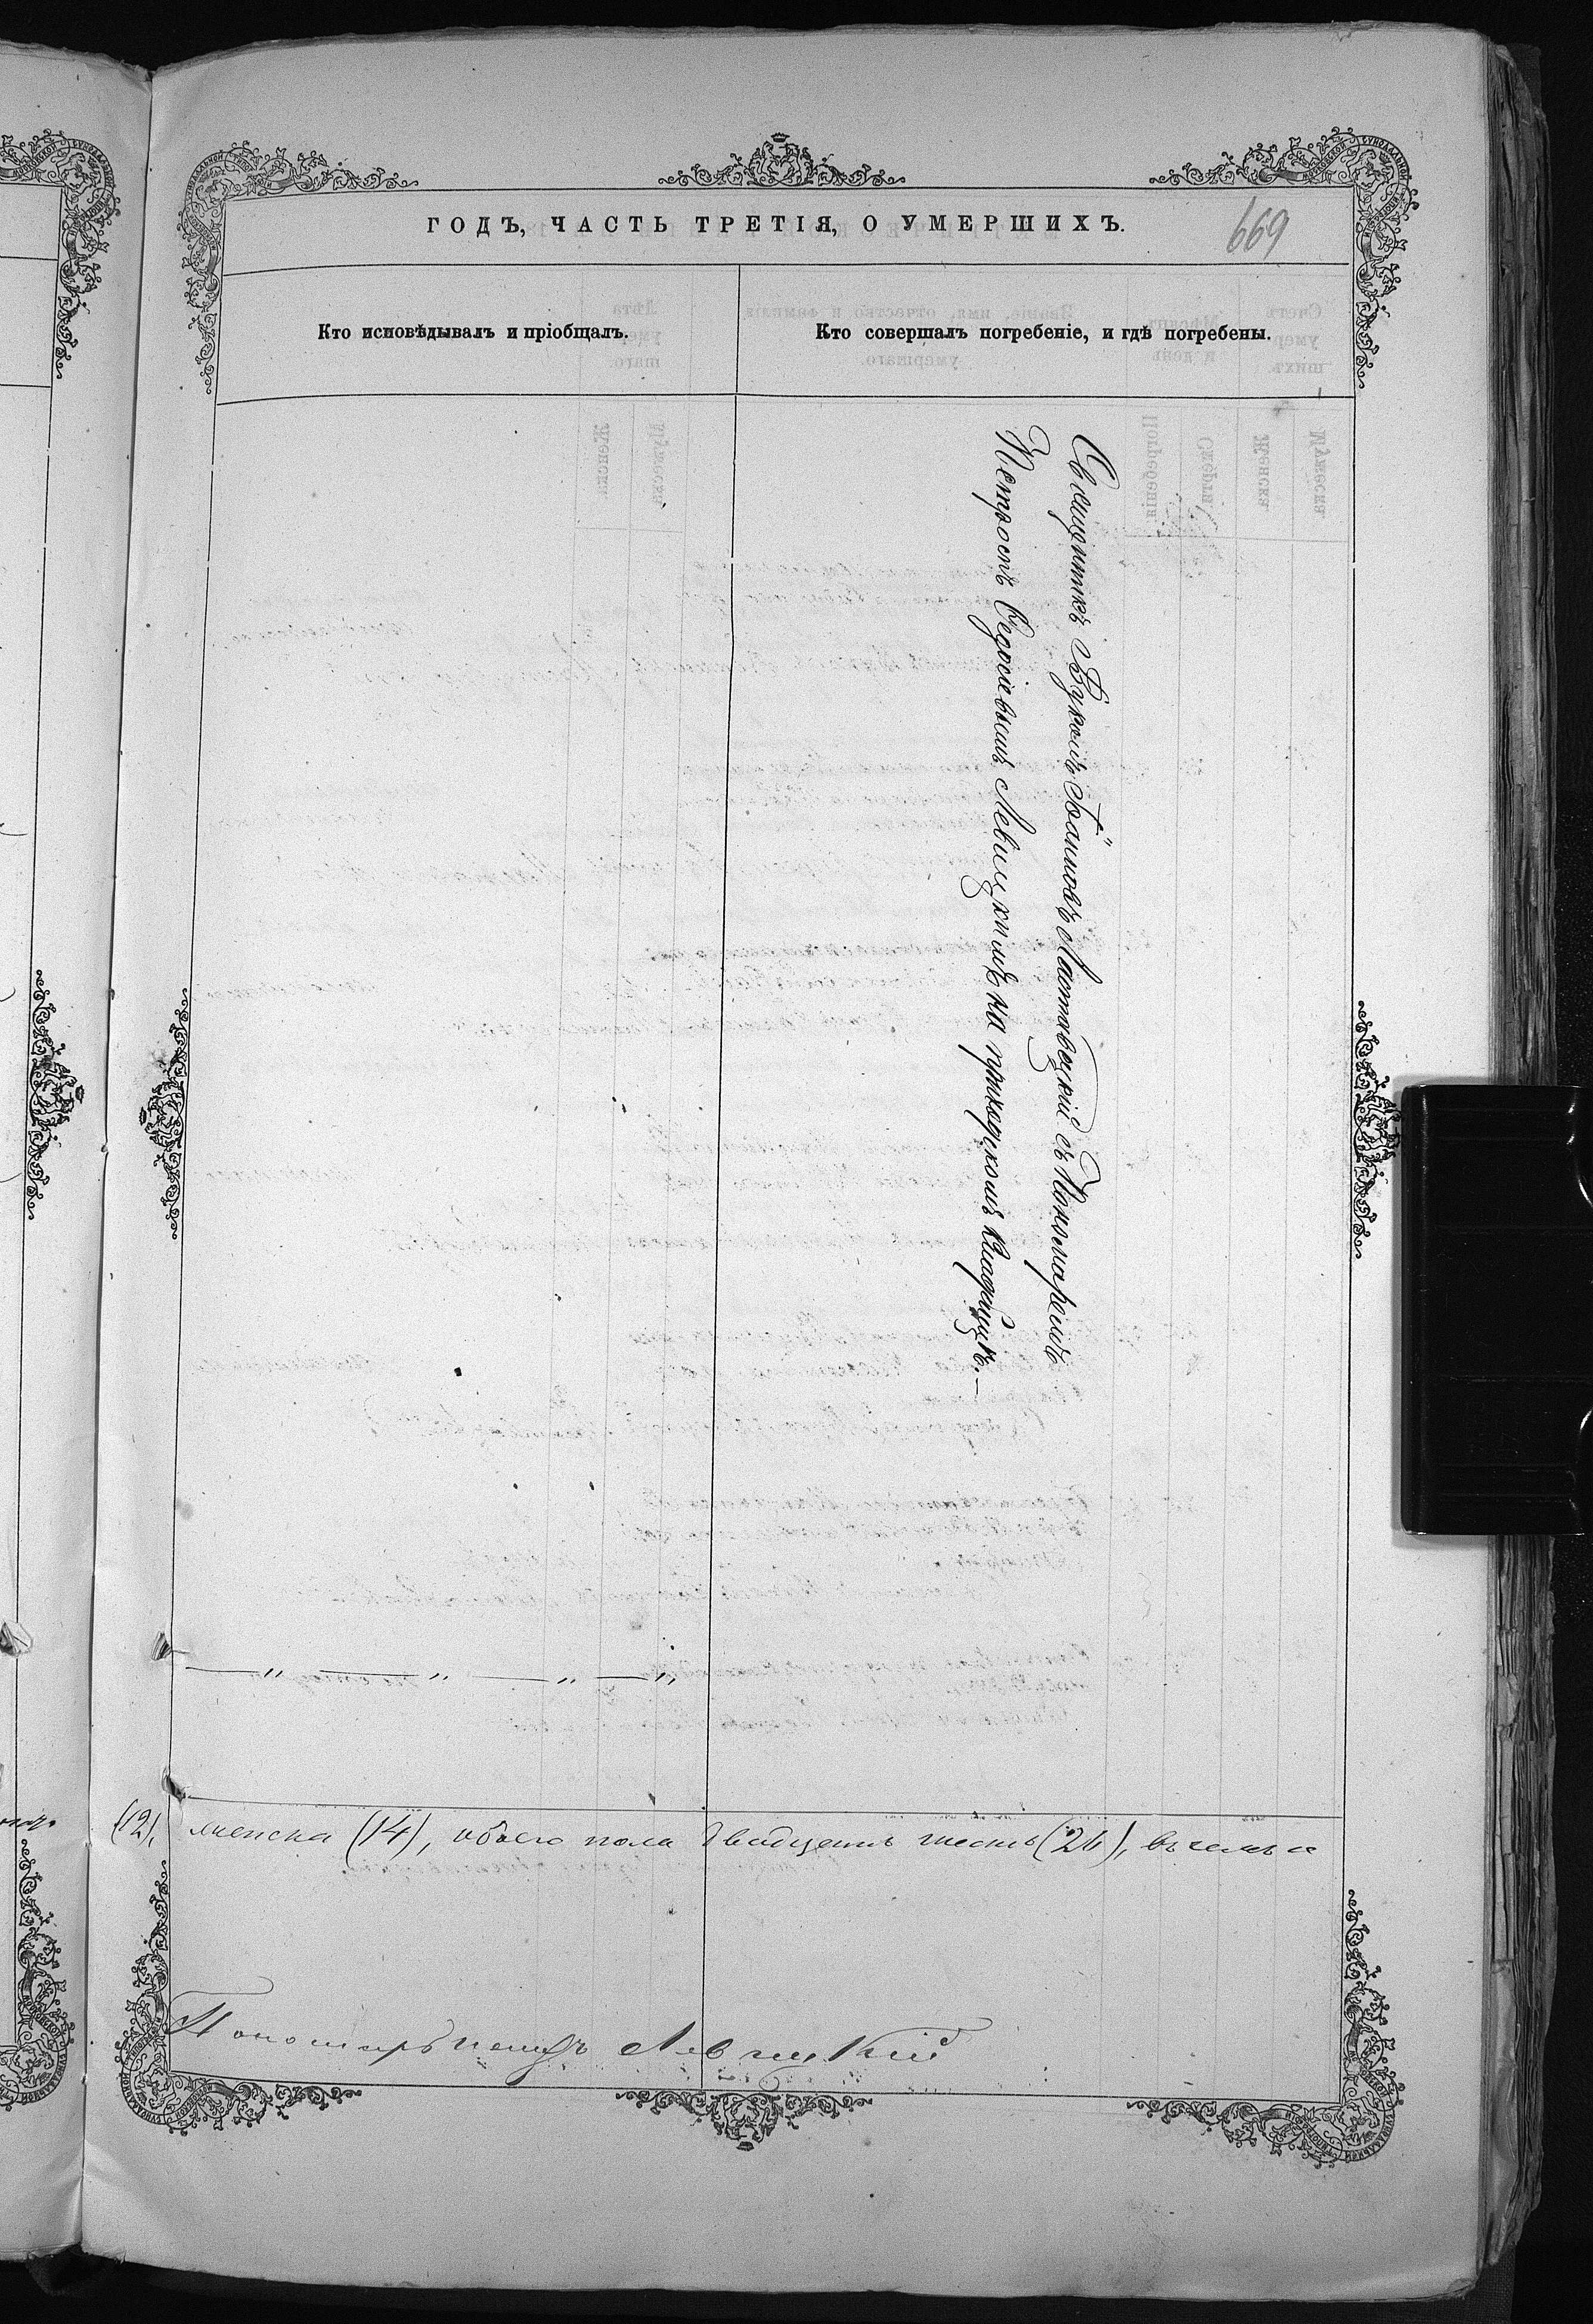 ГОДЪ, ЧАСТЬ ТРЕТІЯ, О УМЕРШИХЪ.
669
Кто исповѣдывалъ и пріобщалъ.
Кто совершалъ погребеніе, и гдѣ погребены.
Священникъ Вуколъ Іоанновъ Ластавецкій съ Пономаремъ
Петромъ Ѳедосіевымъ Левицкимъ на приходскомъ кладбищѣ.—
—„ —„ —„ —„
(12), женска (14), обоего пола двадцать шесть (26), въ чемъ и
Пономарь Петръ Левицкій